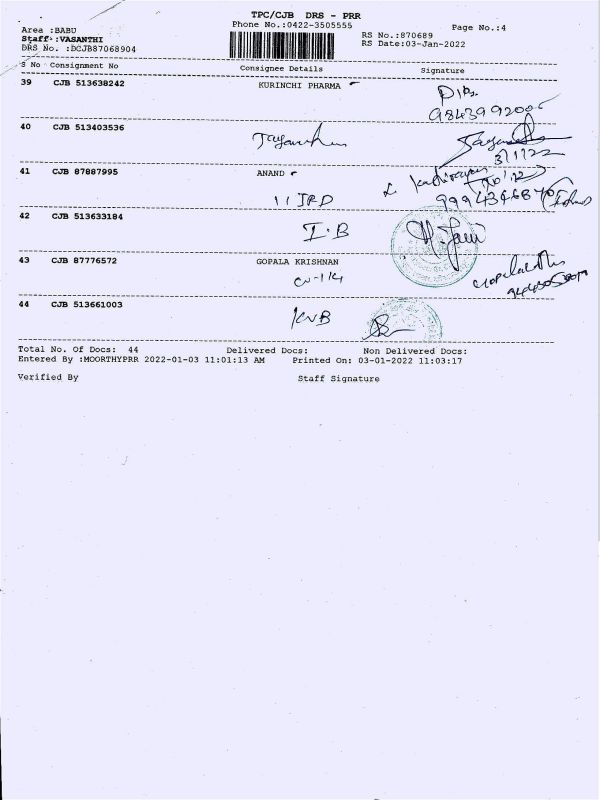 TPC/CJB DRS - PRR
Phone No.:0422-3505555
Page No.:4
Area :BABU
Staff :VASANTHI
DRS No. :DCJB87068904
RS No.:870689
RS Date:03-Jan-2022
S No Consignment No Consignee Details Signature
39 CJB 513638242 KURINCHI PHARMA
40 CJB 513403536
3/1/22
41 CJB 87887995 ANAND
42 CJB 513633184 I.B
43 CJB 87776572 GOPALA KRISHNAN
44 CJB 513661003 KVB
Total No. Of Docs: 44 Delivered Docs: Non Delivered Docs:
Entered By :MOORTHYPRR 2022-01-03 11:01:13 AM Printed On: 03-01-2022 11:03:17
Verified By Staff Signature